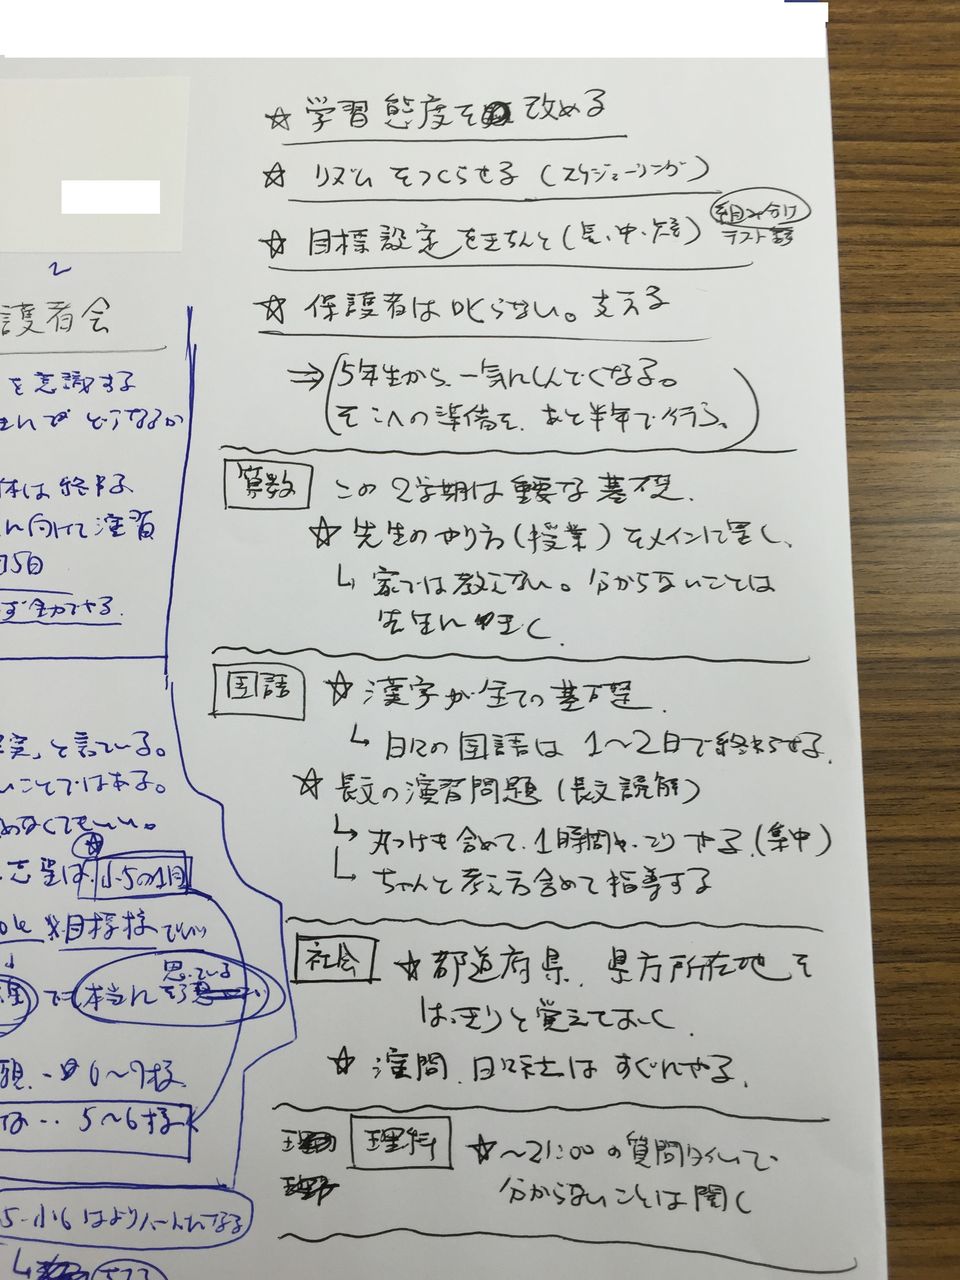 ☆ 学習態度を改める
☆ リズムをつくらせる（スケジューリング）
☆ 目標設定をきちんと（長、中、短）
組み分け
テスト
☆ 保護者は叱らない。支える
⇒（5年生から、一気にしんどくなる。
そこへの準備を、あと半年で行う。）
算数 この2学期は重要な基礎.
☆ 先生のやり方（授業）をメインに置く、
↳ 家では教えない。分からないことは
先生に聞く
国語 ☆ 漢字が全ての基礎.
↳ 日々の国語は 1〜2日で終わらせる.
☆ 長文の演習問題（長文読解）
↳ 丸つけも含めて、1時間やっつり やる.（集中）
↳ ちゃんと考え方含めて指導する
社会 ☆ 都道府県、県庁所在地を
はっきりと覚えておく.
☆ 演問、日々社はすぐにやる.
理科 ☆ 〜21:00の質問タイムで
分からないことは聞く
2
護者会
を意識する
どうなるか
体は終了.
に向けて演習
15日
ず全力でやる.
実」と言っている。
いことではある。
めなくてもいい。
志望は、☆小5の1月
目標校でいい
で本当に思っている
6〜7校
5〜6校
5-小6はよりハードになる